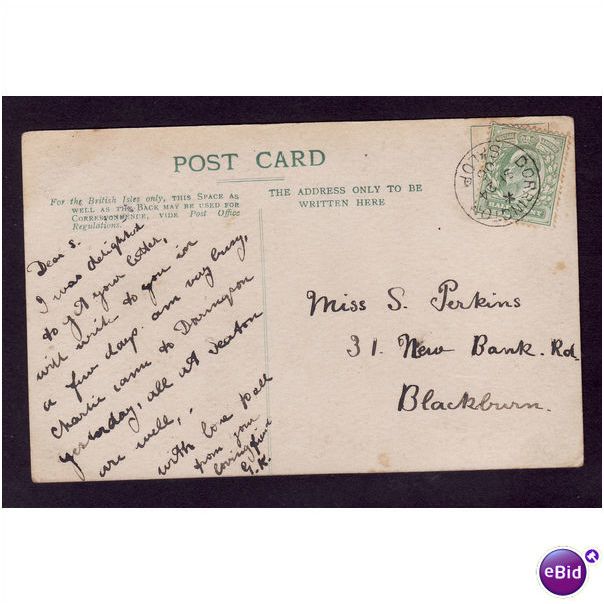 POST CARD
For the British Isles only, THIS SPACE AS
WELL AS THE BACK MAY BE USED FOR
CORRESPONDENCE, VIDE Post Office
Regulations.
THE ADDRESS ONLY TO BE
WRITTEN HERE
Dear S.
I was delighted
to get your letter,
will write to you in
a few days. am very busy,
Charlie came to Dorrington
yesterday, all at Seaton
are well,
with love to all
from your
loving friend
G.K.
Miss S. Perkins
31. New Bank. Rd.
Blackburn.
DORRINGTON
SALOP
eBid